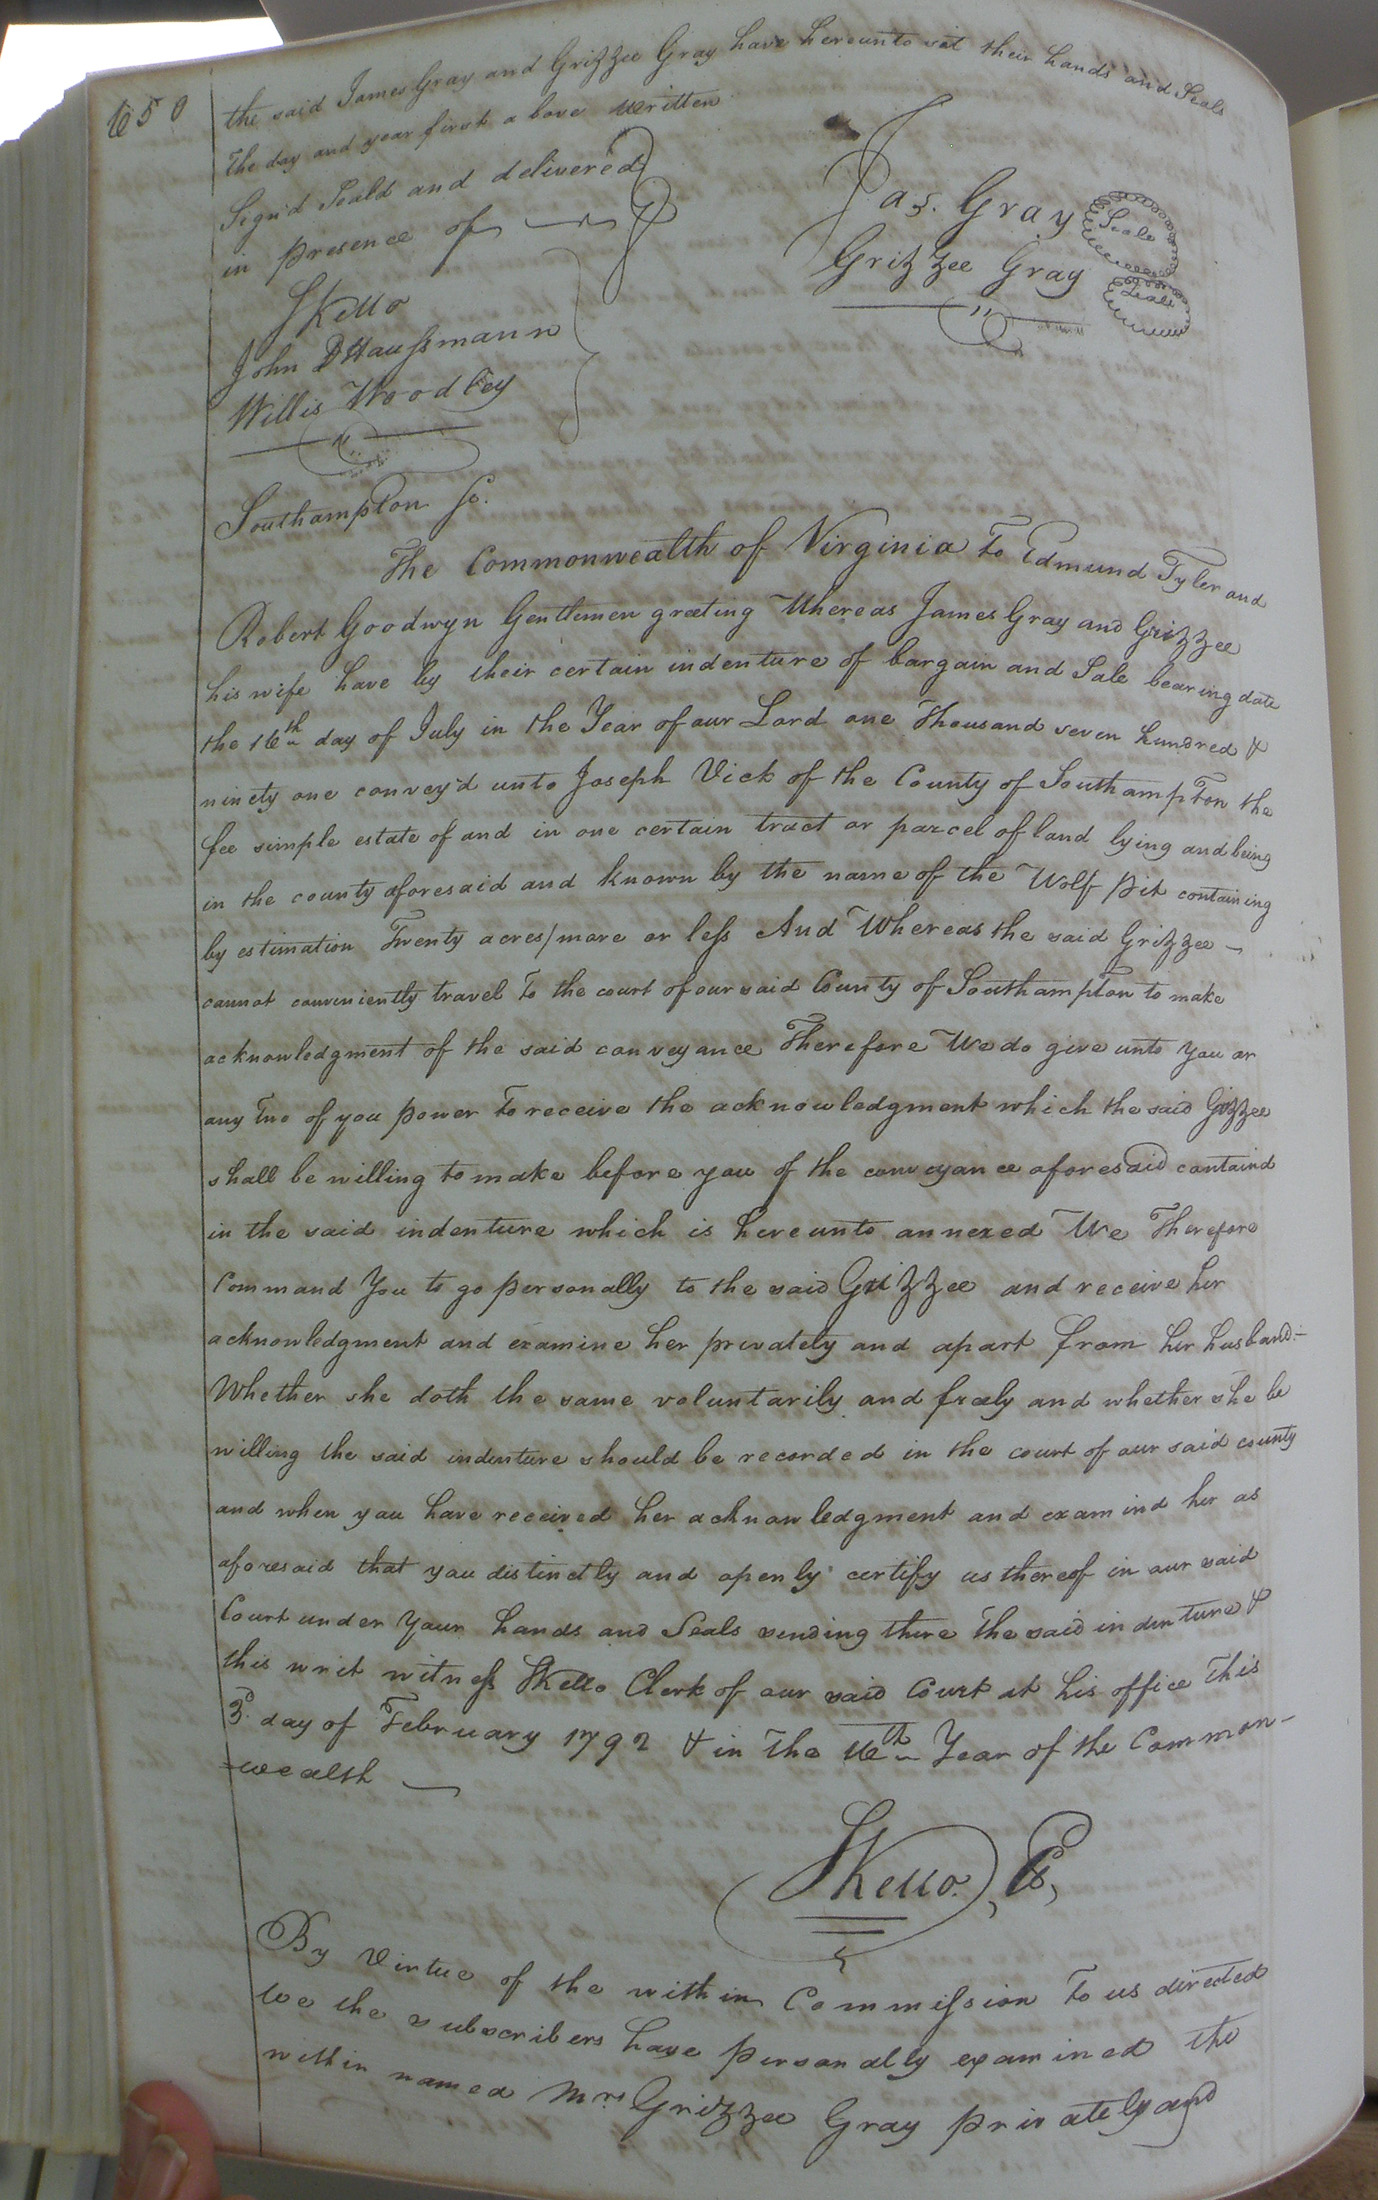 650
the said James Gray and Grizzee Gray have hereunto set their hands and Seals
the day and year first a bove written
Sign'd Seald and delivered
in presence of
Jas. Gray Seale
Grizzee Gray Seale
SKello
John D Haussmann
Willis Woodley
Southampton Sc.
The Commonwealth of Virginia To Edmund Tyler and
Robert Goodwyn Gentlemen greeting Whereas James Gray and Grizzee
his wife have by their certain indenture of bargain and Sale bearing date
the 16th day of July in the Year of our Lord one Thousand seven hundred &
ninety one convey'd unto Joseph Vick of the County of Southampton the
fee simple estate of and in one certain tract or parcel of land lying and being
in the county aforesaid and known by the name of the Wolf Pit containing
by estimation Twenty acres/more or less And Whereas the said Grizzee
cannot conveniently travel To the court of our said County of Southampton to make
acknowledgment of the said conveyance Therefore We do give unto you or
any two of you power To receive the acknowledgment which the said Grizzee
shall be willing to make before you of the conveyance aforesaid containd
in the said indenture which is hereunto annexed We Therefore
Command You to go personally to the said Grizzee and receive her
acknowledgment and examine her privately and apart from her husband:-
Whether she doth the same voluntarily and freely and whether she be
willing the said indenture should be recorded in the court of our said county
and when you have received her acknowledgment and examind her as
aforesaid that you distinctly and openly certify us thereof in our said
Court under Your hands and Seals sending there the said indenture &
this writ witness SKello Clerk of our said Court at his office This
3d. day of February 1792 & in The 16th Year of the Common-
-wealth
SKello. Cs,
By Virtue of the within Commission To us directed
we the subscribers have personally examined the
within named Mrs Grizzee Gray privately and